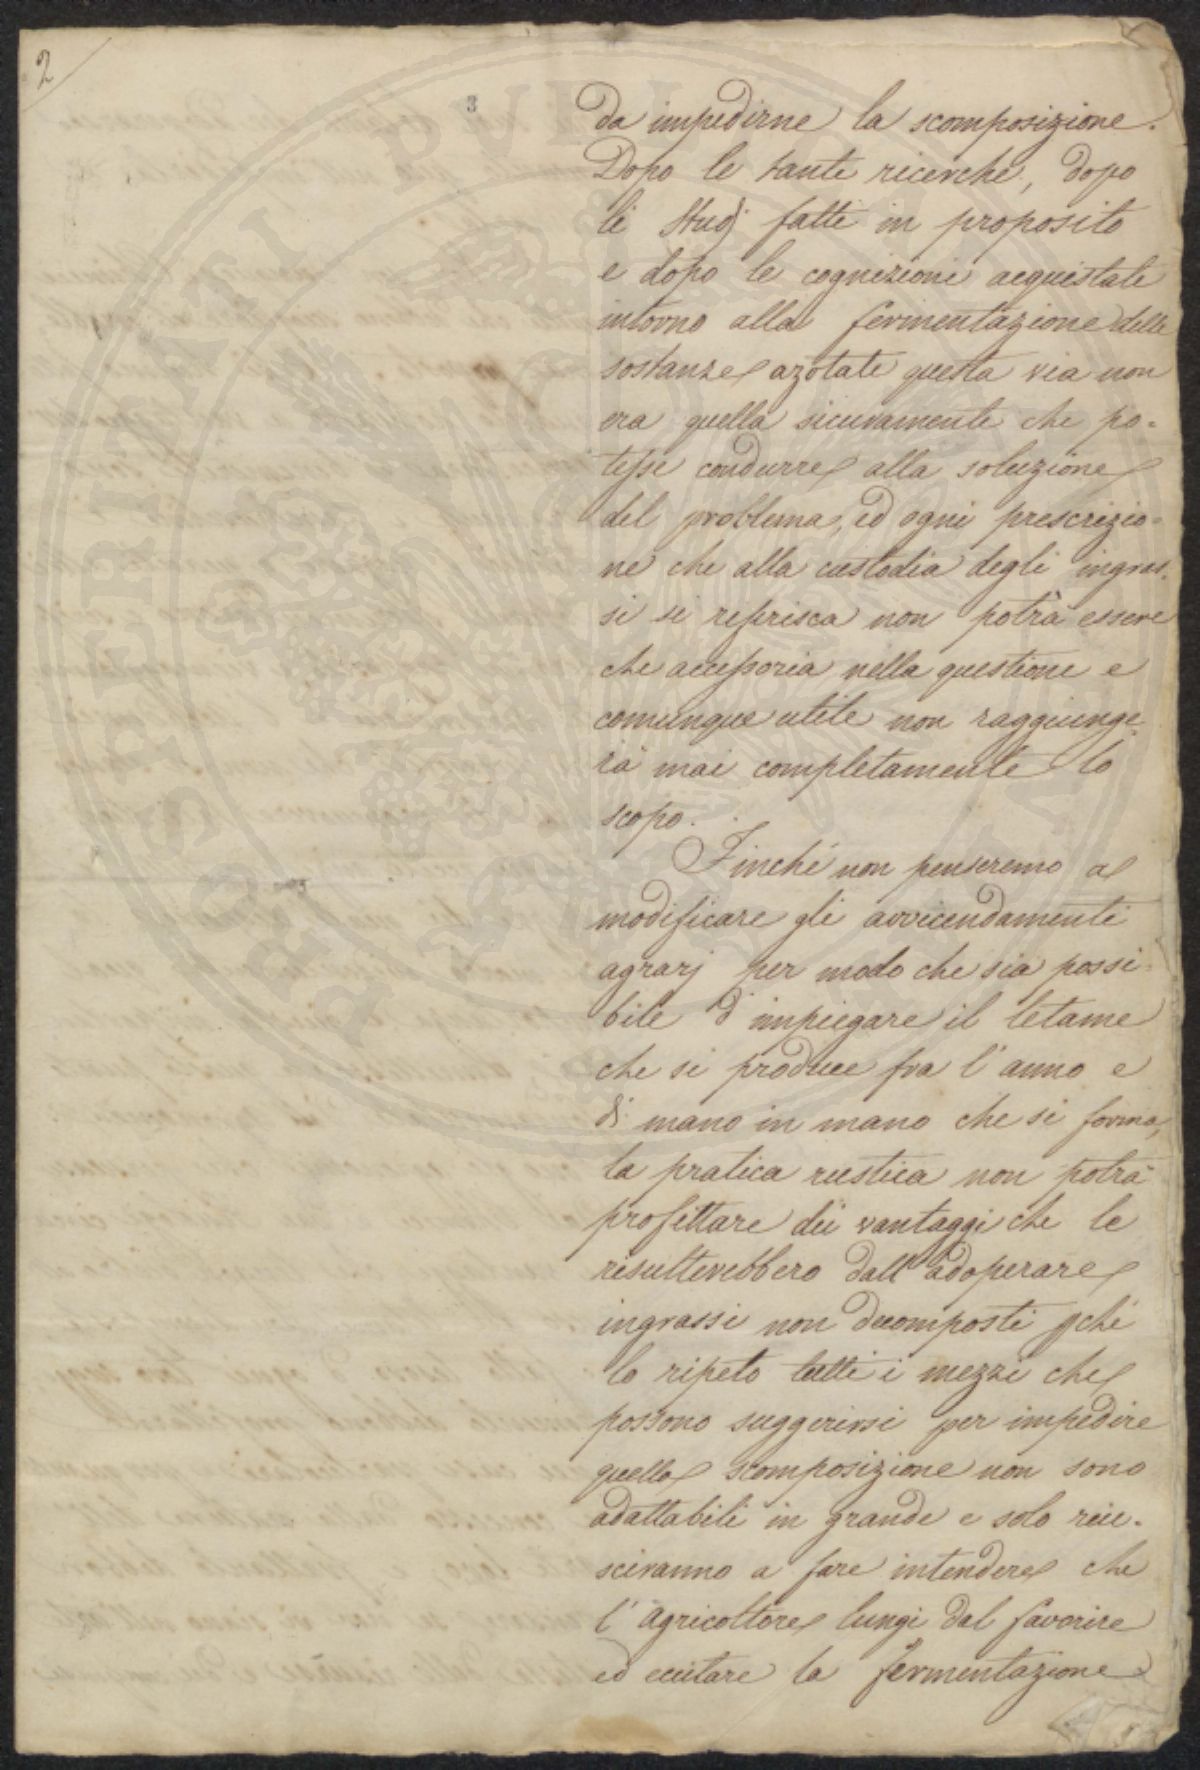 2
3
da impedirne la scomposizione.
Dopo le tante ricerche, dopo
li studj fatti in proposito
e dopo le cognizioni acquistate
intorno alla fermentazione delle
sostanze azotate questa via non
era quella sicuramente che po-
tesse condurre alla soluzione
del problema, ed ogni prescrizio-
ne che alla custodia degli ingras-
si si referisca non potrà essere
che accessoria nella questione e
comunque utile non raggiunge-
rà mai completamente lo
scopo.
Finché non penseremo a
modificare gli avvicendamenti
agrarj per modo che sia possi-
bile d'impiegare il letame
che si produce fra l'anno e
di mano in mano che si forma,
la pratica rustica non potrà
profittare dei vantaggi che le
risulterebbero dall'adoperare
ingrassi non decomposti pché
lo ripeto tutti i mezzi che
possono suggerirsi per impedire
quella scomposizione non sono
adattabili in grande e solo riu-
sciranno a fare intendere che
l'agricoltore lungi dal favorire
ed eccitare la fermentazione
PROSPERITATI PVBLICAE